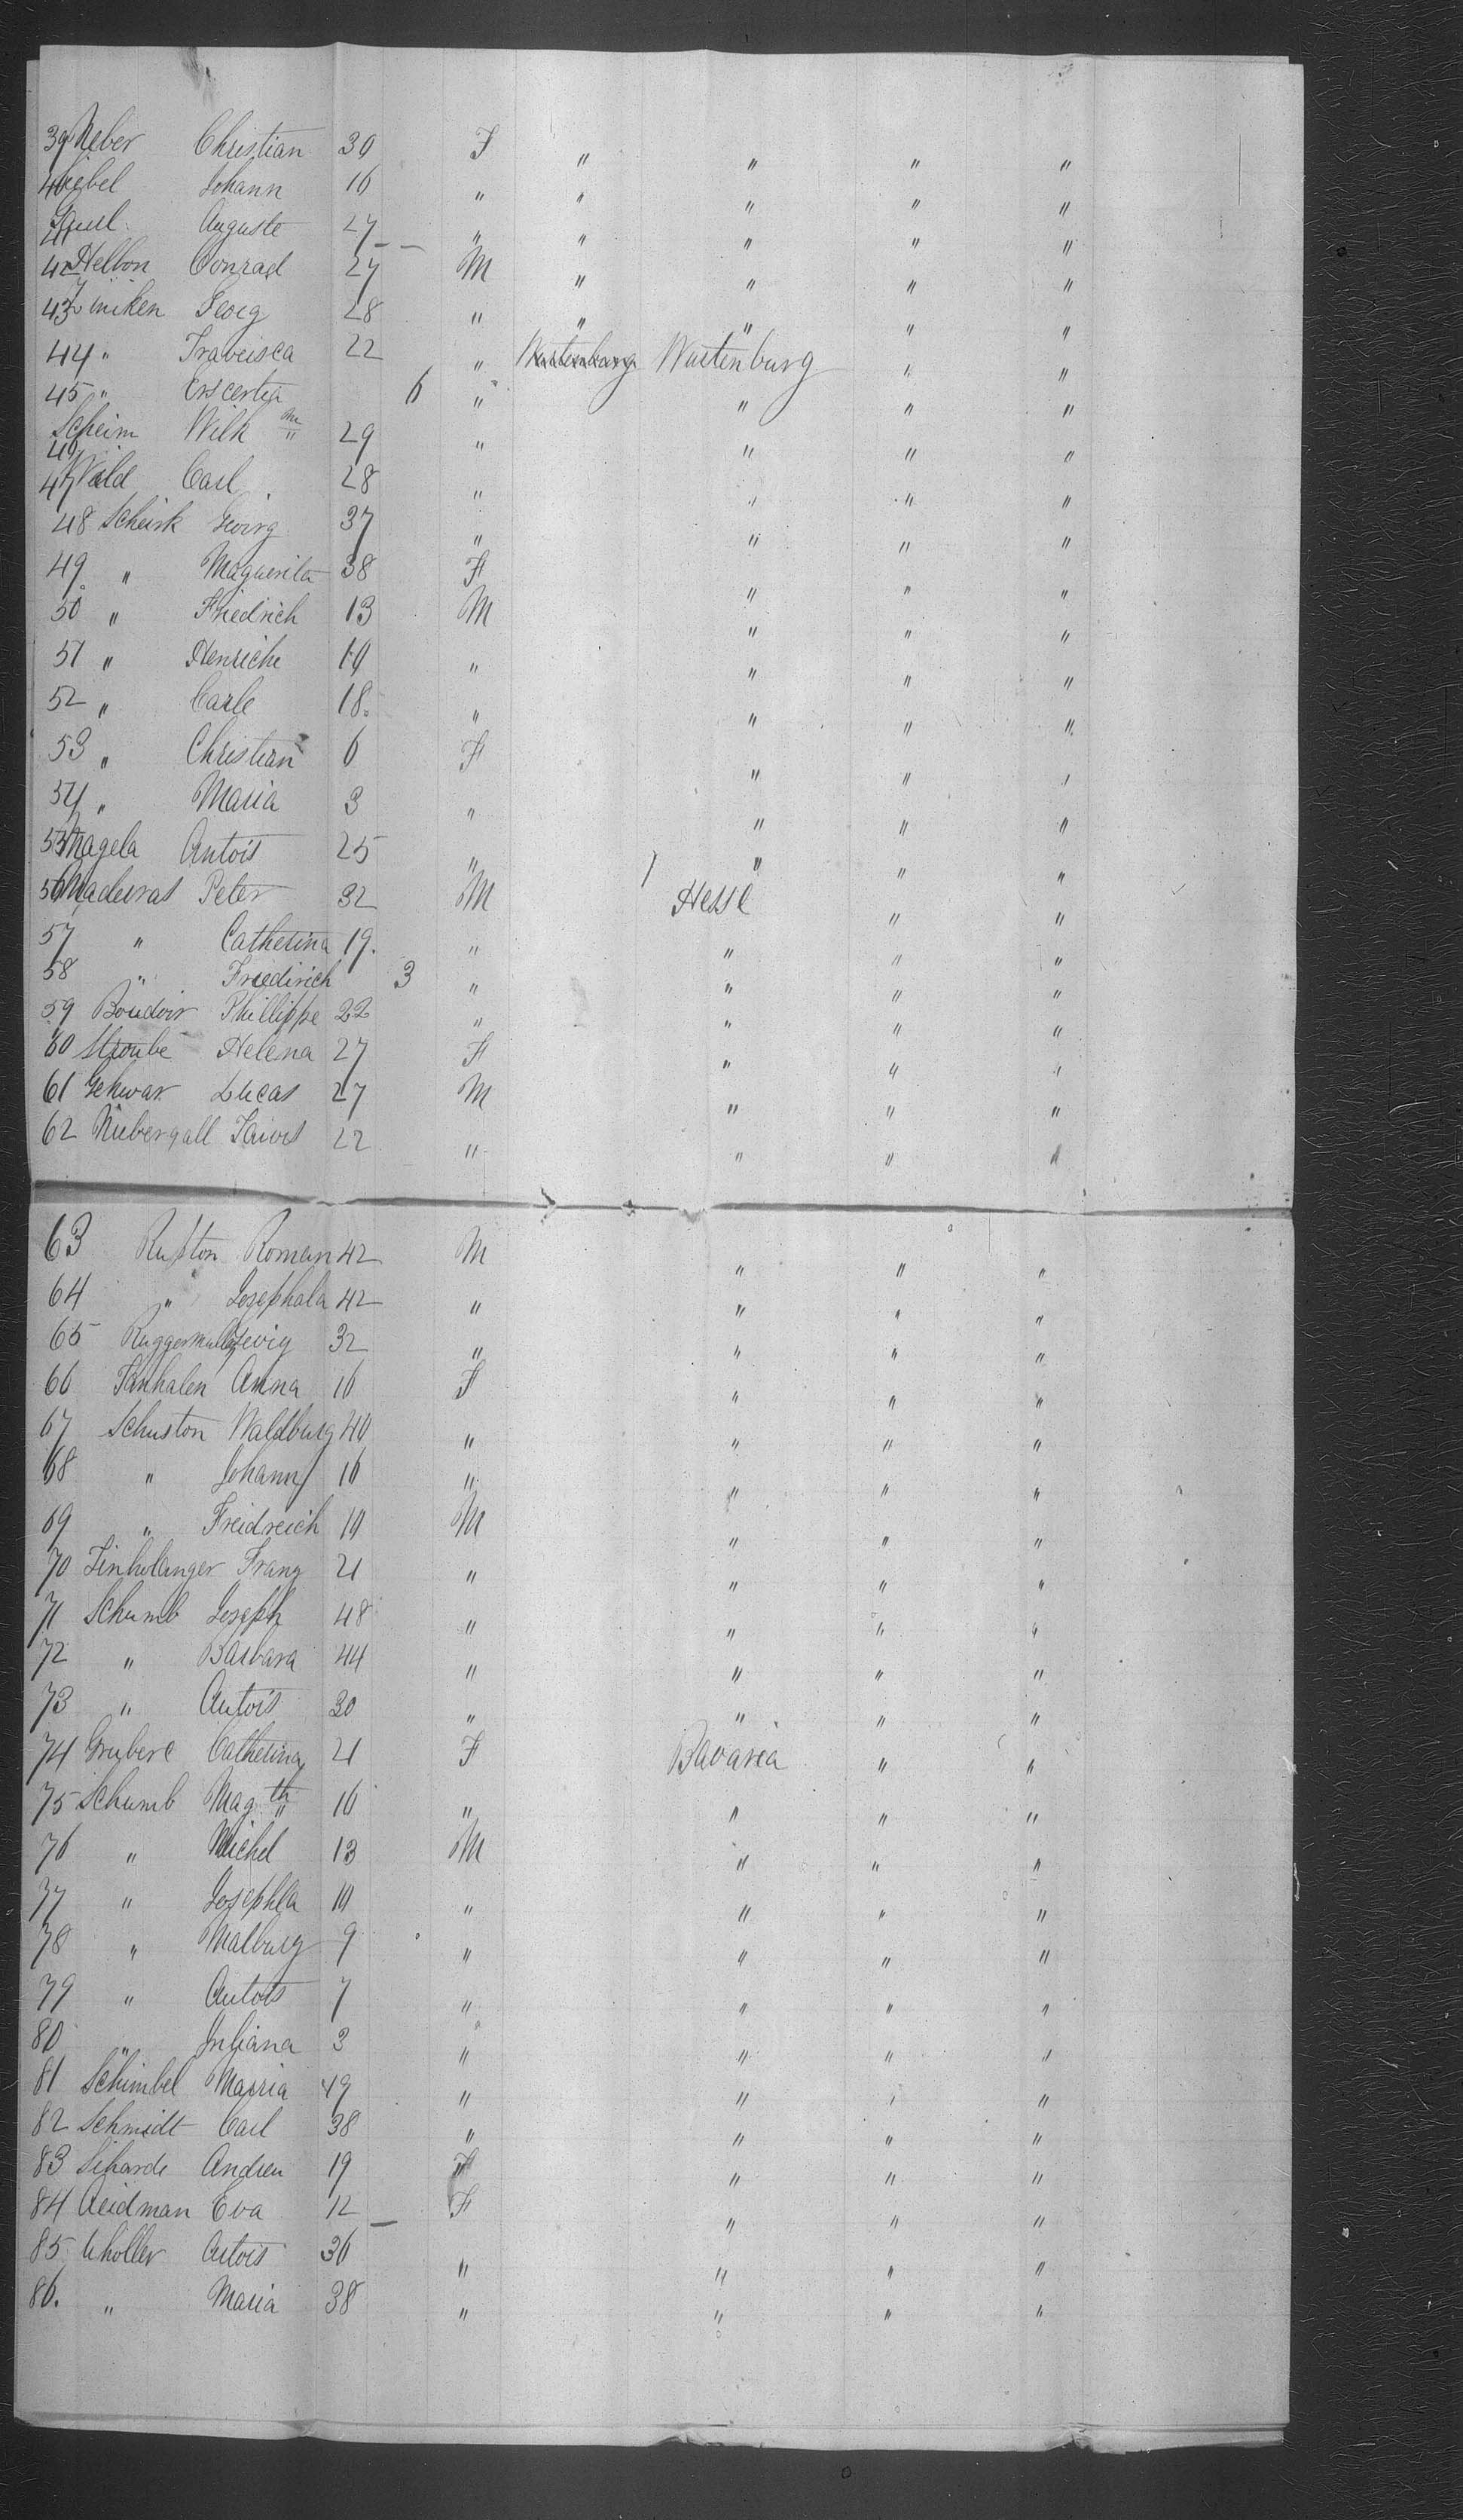 39 Weber Christian 30 F " " " "
40 Siebel Johann 16 " " " " "
41 Saul Auguste 27 " " " " "
42 Hellon Conrad 27 M " " " "
43 Zimiken Georg 28 " " " " "
44 " Francisca 22 " Wurtenburg Wurtenburg " "
45 " Crscertia 6 " " " "
46 Scheim Wilh m 29 " " " "
47 Wald Carl 28 " " " "
48 Scheirk Georg 37 " " " "
49 " Maguerita 38 F " " "
50 " Friedrich 13 M " " "
51 " Henriche 10 " " " "
52 " Carle 18 " " " "
53 " Christian 6 F " " "
54 " Maria 3 " " " "
55 Nagela Antois 25 " " " "
56 Madeiras Peter 32 M Hesse " "
57 " Catherina 19. " " " "
58 " Friedirich 3 " " " "
59 Boudoir Phillippe 22 " " " "
60 Stroube Helena 27 F " " "
61 Schwar Lucas 27 M " " "
62 Niebergall 22 " " " "
63 Rupton Roman 42 M " " "
64 " Josephala 42 " " " "
65 32 " " " "
66 Tanhalen Anna 16 F " " "
67 Schuston Waldburg 40 " " " "
68 " Johann 16 " " " "
69 " Freidreich 10 M " " "
70 Linhelanger Franz 21 " " " "
71 Schumb Joseph 48 " " " "
72 " Barbara 44 " " " "
73 " Antois 30 " " " "
74 Grubere Catherina 21 F Bavaria " "
75 Schumb Mag th 16 " " " "
76 " Michel 13 M " " "
77 " Josephla 10 " " " "
78 " Malburg 9 " " " "
79 " Antots 7 " " " "
80 " Juliana 3 " " " "
81 Schimbel Marria 49 " " " "
82 Schmidt Carl 38 " " " "
83 Liharde Andreu 19 " " " "
84 Aeidman Eva 12 F " " "
85 Uholler Antois 36 " " " "
86. " Maria 38 " " " "